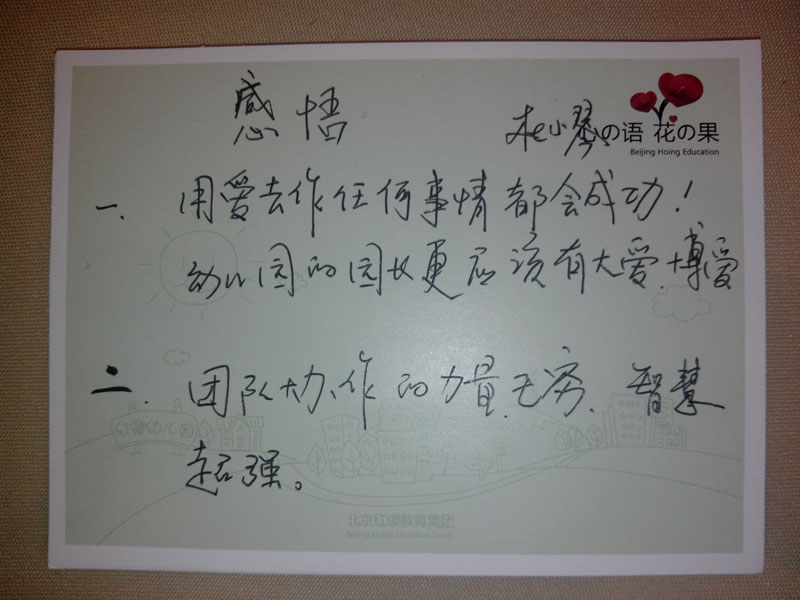 感悟
杜小琴
の语 花の果
Beijing Hoing Education
一、用爱去作任何事情都会成功！
幼儿园的园长更应该有大爱、博爱
二、团队协作的力量无穷、智慧
超强。
北京红缨教育集团
Beijing Hoing Education Group